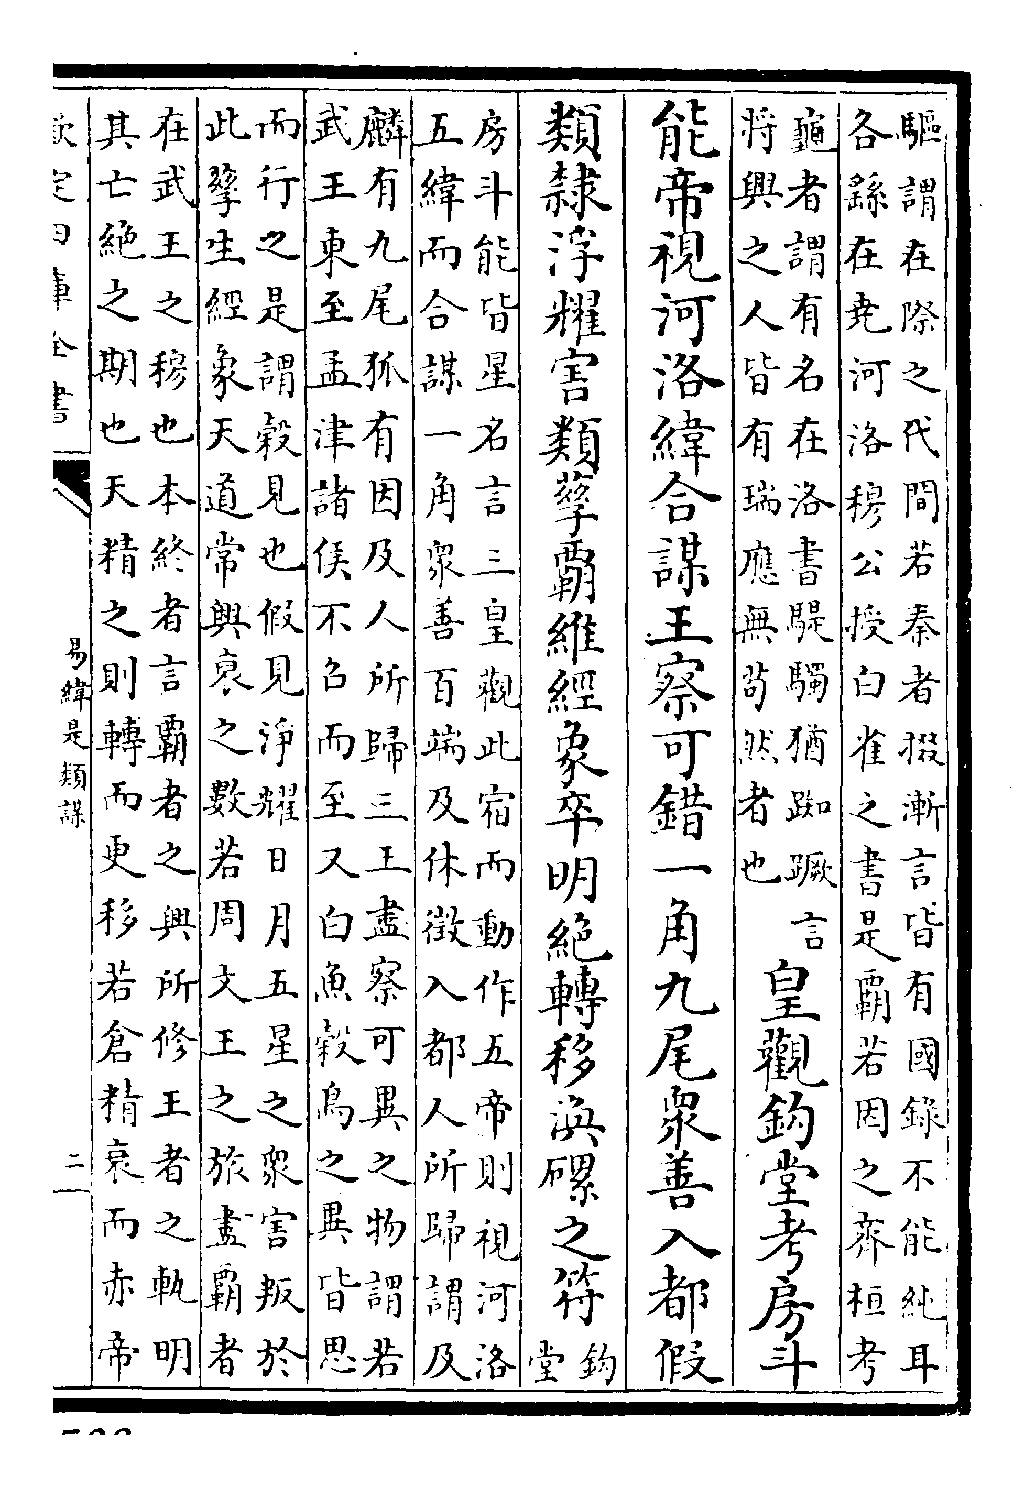 驅謂在際之代間若秦者掇漸言皆有國錄不能純耳
各繇在堯河洛穆公授白雀之書是霸若因之齊桓考
龜者謂有名在洛書騠驨猶踟蹶言
將興之人皆有瑞應無茍然者也
皇觀鈎堂考房斗
能帝視河洛緯合謀王察可錯一角九尾衆善入都假
類隸浮耀害類孽霸維經象卒明絕轉移渙磥之符
鈎
堂
房斗能皆星名言三皇觀此宿而動作五帝則視河洛
五緯而合謀一角衆善百端及休徵入都人所歸謂及
麟有九尾狐有因及人所歸三王盡察可異之物謂若
武王東至孟津諸侯不召而至又白魚穀烏之異皆思
而行之是謂穀見也假見淨耀日月五星之衆害叛於
此孽生經象天道常興衰之數若周文王之旅盡霸者
在武王之穆也本終者言霸者之興所修王者之軌明
其亡絕之期也天精之則轉而更移若倉精衰而赤帝
欽定四庫全書
易緯是類謀
二